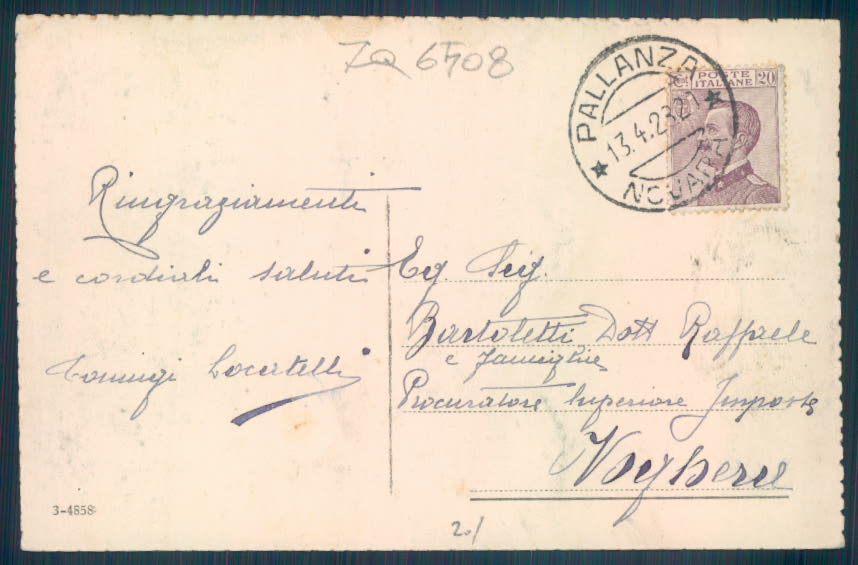 ZQ 6508
PALLANZA
13.4.23 21
NOVARA
POSTE
ITALIANE
20
Ringraziamenti
e cordiali saluti
Coniugi Locatelli
Eg Sig.
Bartoletti Dott Raffaele
e famiglia
Procuratore Superiore Imposte
Voghera
3-4858
20/